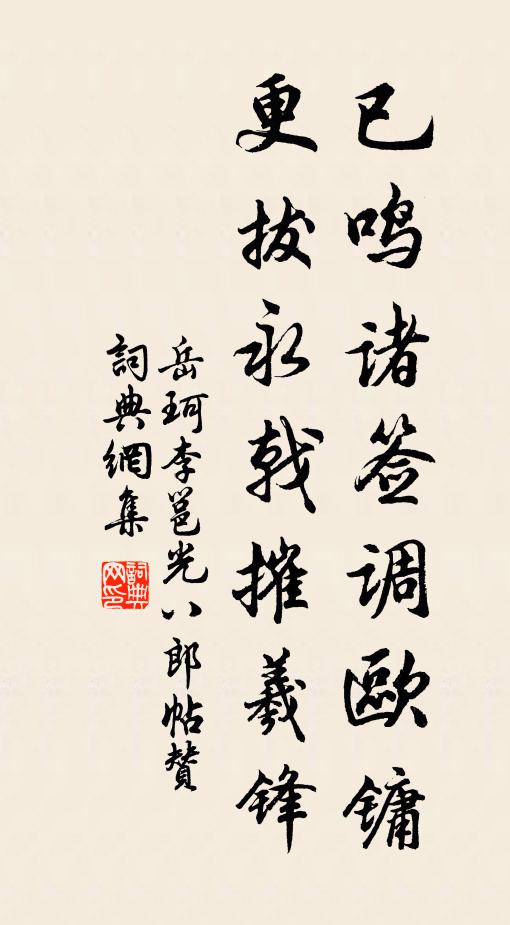 已鸣诸签调欧镛
更拔永戟摧羲锋
岳珂李邕光八郎帖赞
詞典網集
詞典网印